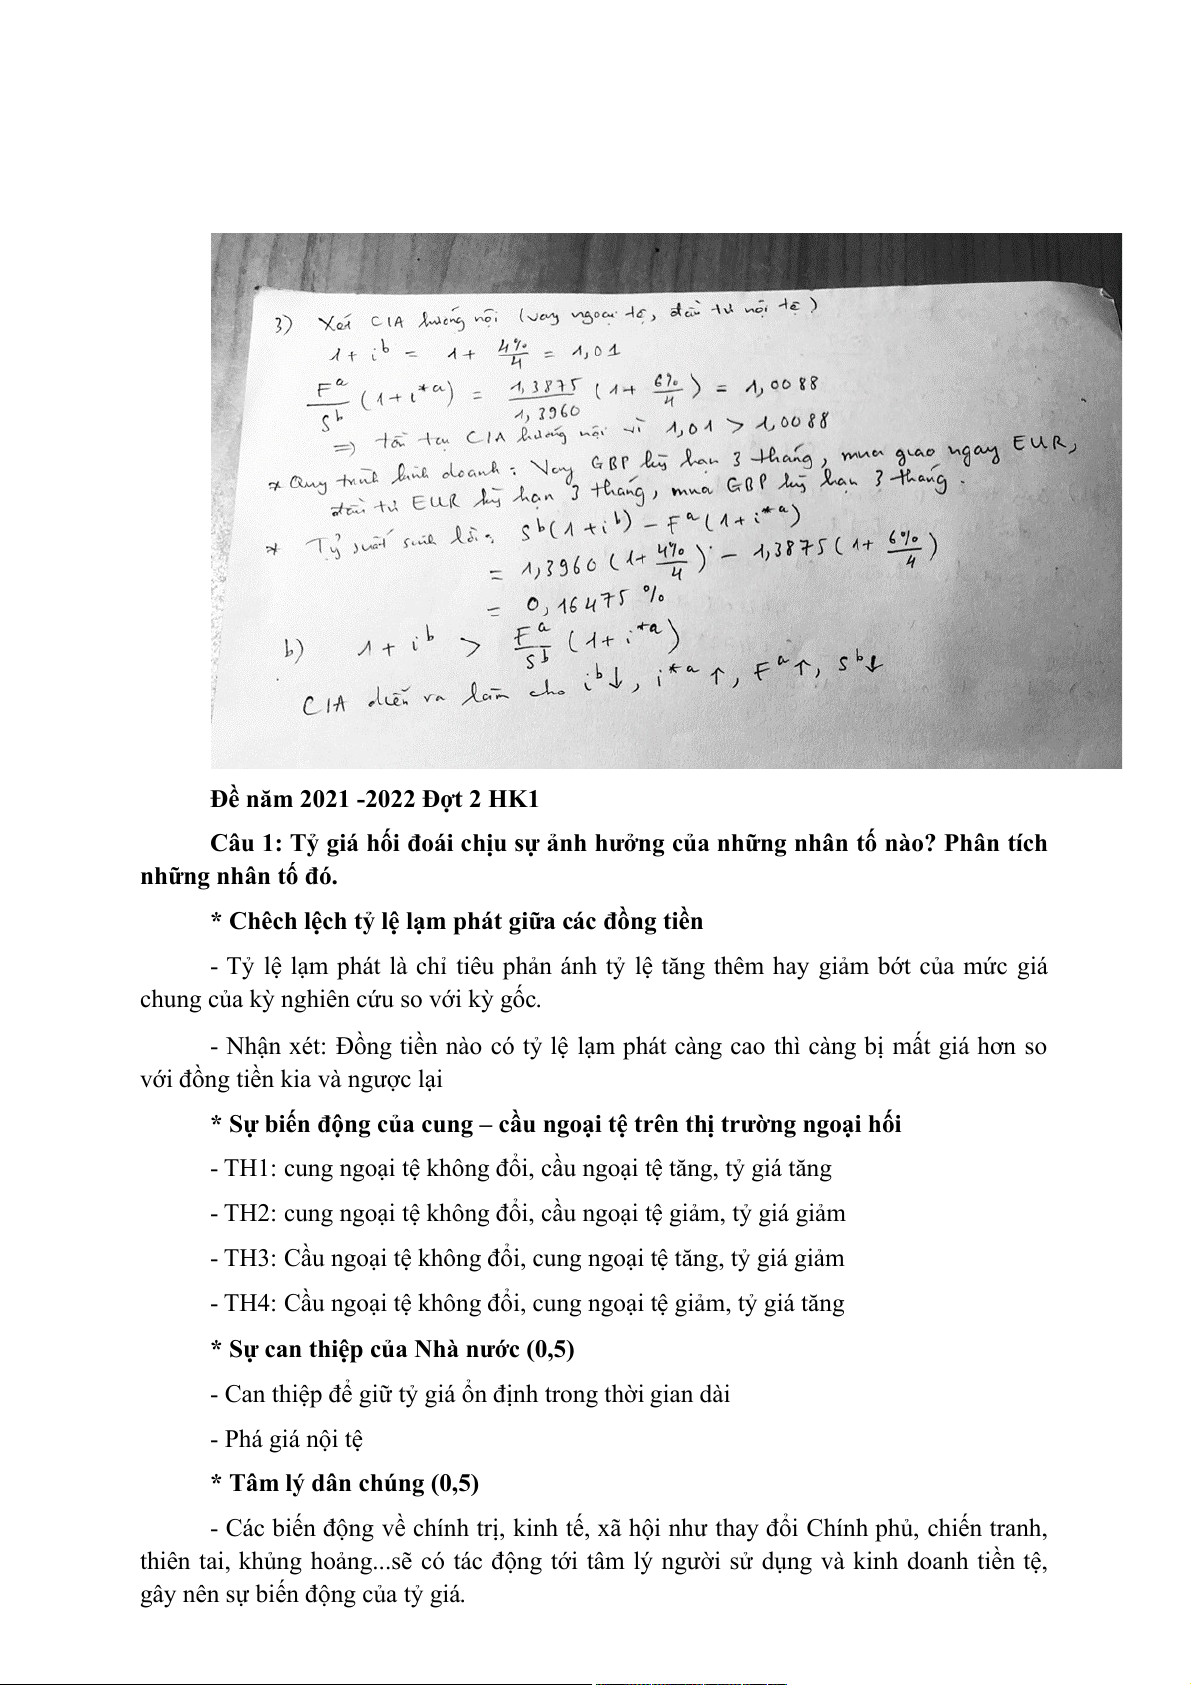 3) Xét CIA hướng nội (vay ngoại tệ, đầu tư nội tệ)
1 + i^b = 1 + 4%/4 = 1,01
F^a/S^b (1 + i^*a) = 1,3875/1,3960 (1 + 6%/4) = 1,0088
=> tồn tại CIA hướng nội vì 1,01 > 1,0088
* Quy trình kinh doanh: Vay GBP kỳ hạn 3 tháng, mua giao ngay EUR,
đầu tư EUR kỳ hạn 3 tháng, mua GBP kỳ hạn 3 tháng.
* Tỷ suất sinh lời: S^b(1 + i^b) - F^a(1 + i^*a)
= 1,3960 (1 + 4%/4) - 1,3875 (1 + 6%/4)
= 0,16475 %
b) 1 + i^b > F^a/S^b (1 + i^*a)
CIA diễn ra làm cho i^b↓, i^*a↑, F^a↑, S^b↓
Đề năm 2021 -2022 Đợt 2 HK1
Câu 1: Tỷ giá hối đoái chịu sự ảnh hưởng của những nhân tố nào? Phân tích
những nhân tố đó.
* Chêch lệch tỷ lệ lạm phát giữa các đồng tiền
- Tỷ lệ lạm phát là chỉ tiêu phản ánh tỷ lệ tăng thêm hay giảm bớt của mức giá
chung của kỳ nghiên cứu so với kỳ gốc.
- Nhận xét: Đồng tiền nào có tỷ lệ lạm phát càng cao thì càng bị mất giá hơn so
với đồng tiền kia và ngược lại
* Sự biến động của cung – cầu ngoại tệ trên thị trường ngoại hối
- TH1: cung ngoại tệ không đổi, cầu ngoại tệ tăng, tỷ giá tăng
- TH2: cung ngoại tệ không đổi, cầu ngoại tệ giảm, tỷ giá giảm
- TH3: Cầu ngoại tệ không đổi, cung ngoại tệ tăng, tỷ giá giảm
- TH4: Cầu ngoại tệ không đổi, cung ngoại tệ giảm, tỷ giá tăng
* Sự can thiệp của Nhà nước (0,5)
- Can thiệp để giữ tỷ giá ổn định trong thời gian dài
- Phá giá nội tệ
* Tâm lý dân chúng (0,5)
- Các biến động về chính trị, kinh tế, xã hội như thay đổi Chính phủ, chiến tranh,
thiên tai, khủng hoảng...sẽ có tác động tới tâm lý người sử dụng và kinh doanh tiền tệ,
gây nên sự biến động của tỷ giá.